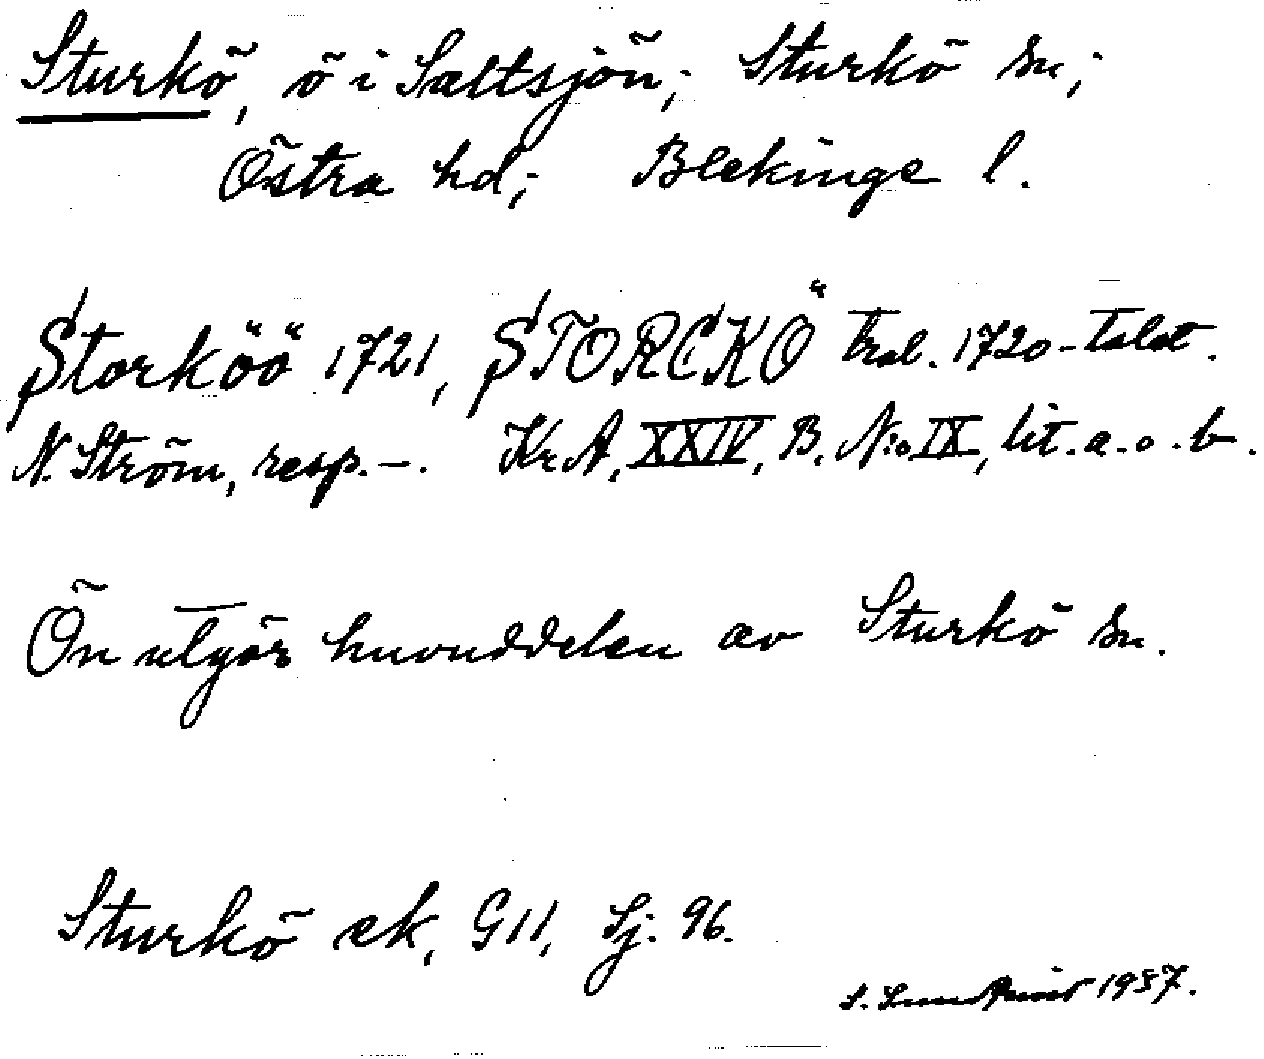 Sturkö, ö i Saltsjön; Sturkö sn;
Östra hd; Blekinge l.
Storköö 1721, STORCKÖ trol. 1720-talet.
N. Ström, resp. –. Kr A, XXIV, B. N:o IX, lit. a. o. b.
Ön utgör huvuddelen av Sturkö sn.
Sturkö ek, G11, Sj. 96.
S. Lundqvist 1957.